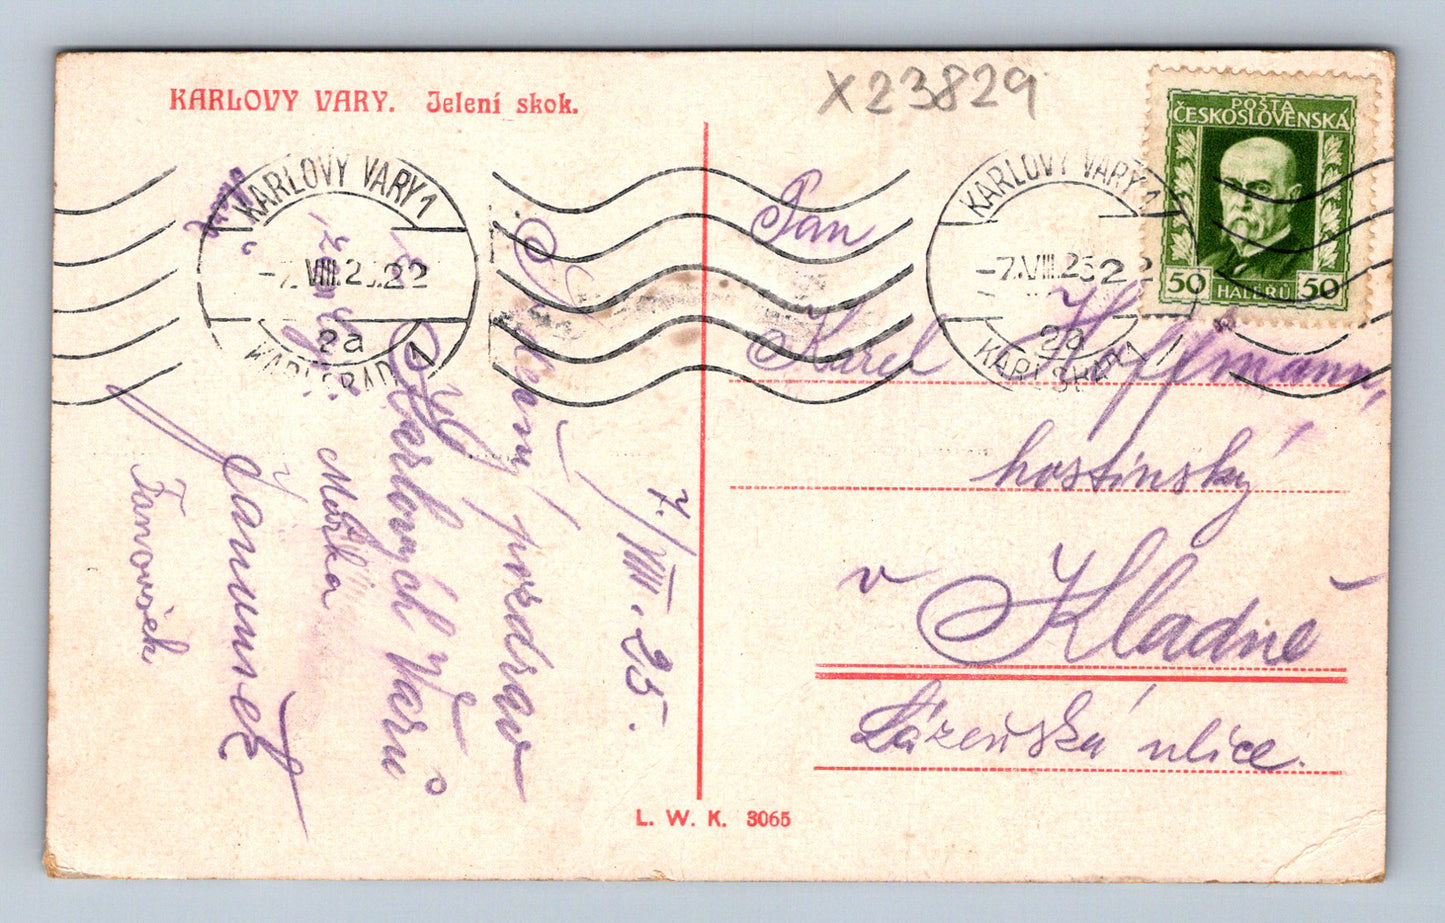 KARLOVY VARY. Jelení skok.
X23829
POŠTA
ČESKOSLOVENSKÁ
50 HALÉŘŮ 50
KARLOVY VARY 1
-7.VIII.25.22
2a
KARLSBAD 1
KARLOVY VARY 1
-7.VIII.25 22
2a
KARLSBAD 1
Pan
Karel Hoffmann,
hostinský
v Kladně
Lázeňská ulice.
7./VIII. 25.
pozdrav
z Karlových Varů
Mařka
L. W. K. 3065